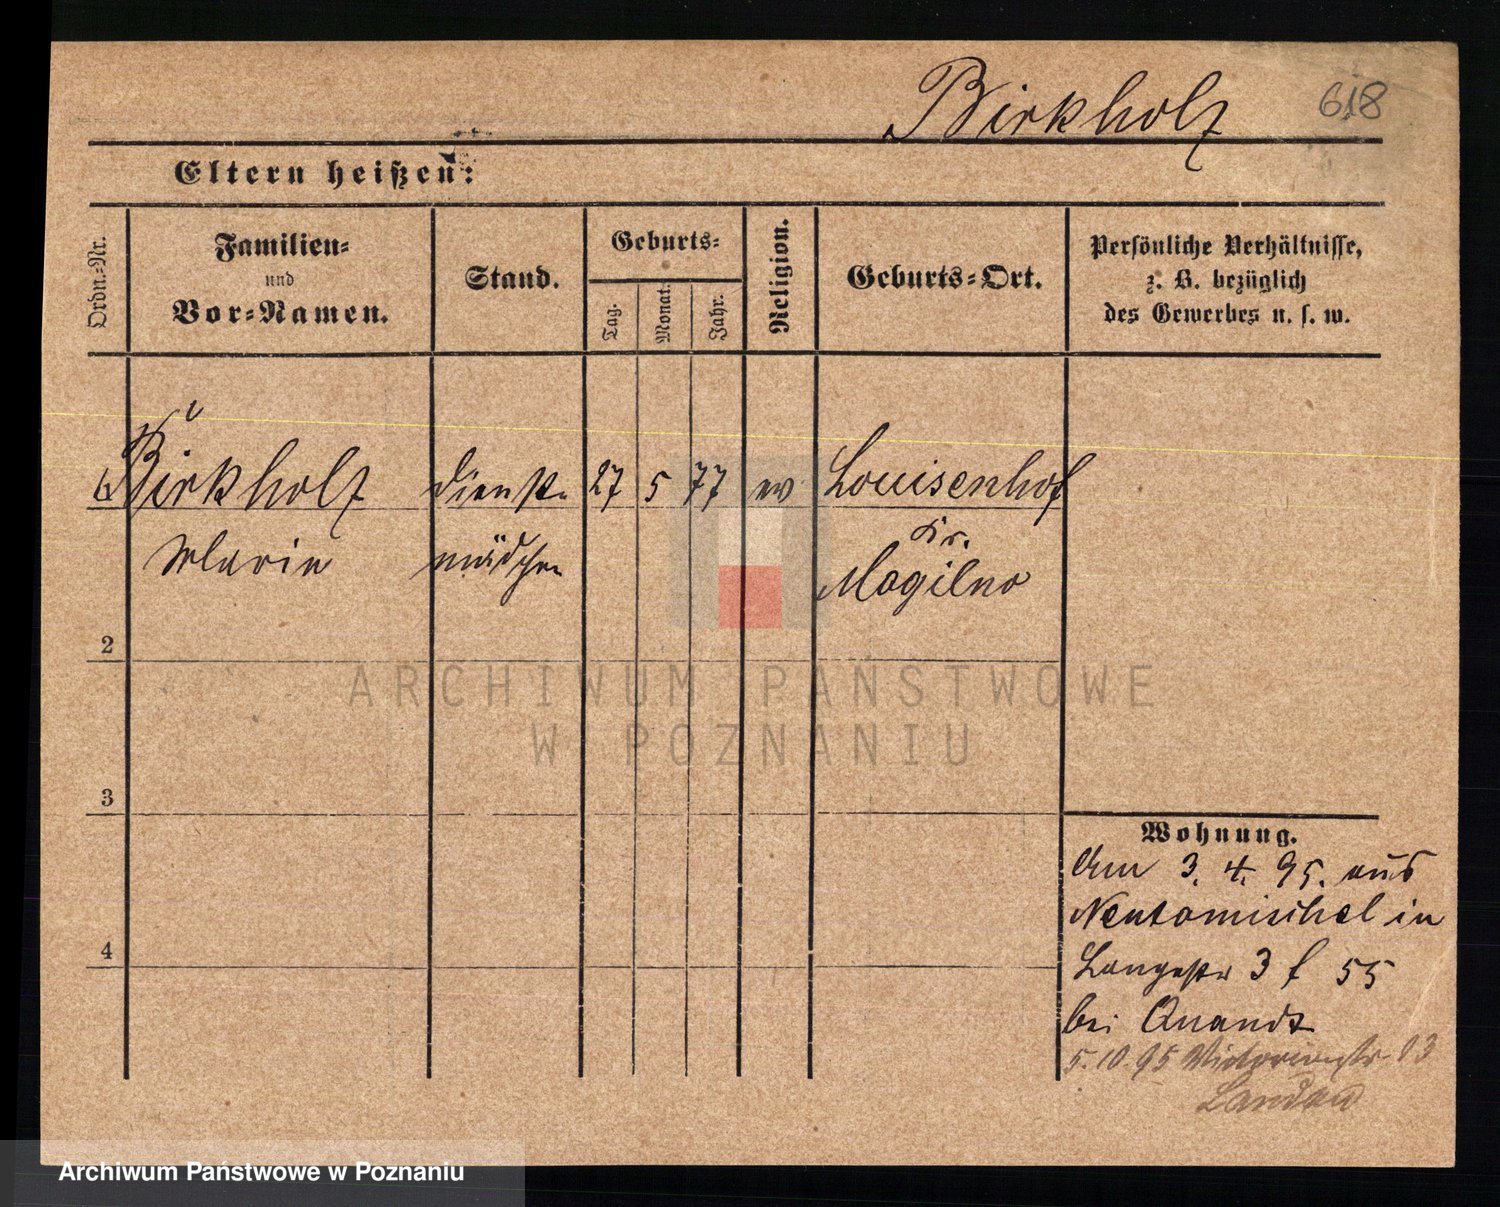 Birkholz 618
Eltern heißen:
Ordn.-Nr.
Familien-
und
Vor-Namen.
Stand.
Geburts-
Tag.
Monat.
Jahr.
Religion.
Geburts-Ort.
Persönliche Verhältnisse,
z. B. bezüglich
des Gewerbes u. s. w.
Birkholz Dienst- 27 5 77 ev Louisenhof
Marie mädchen Kr.
Mogilno
2
3
4
Wohnung.
Am 3. 4. 95. aus
Neutomischel in
Langestr 3 f 55
bei Quandt
5.10.95 Victoriastr. 13
Landau
ARCHIWUM PAŃSTWOWE
W POZNANIU
Archiwum Państwowe w Poznaniu